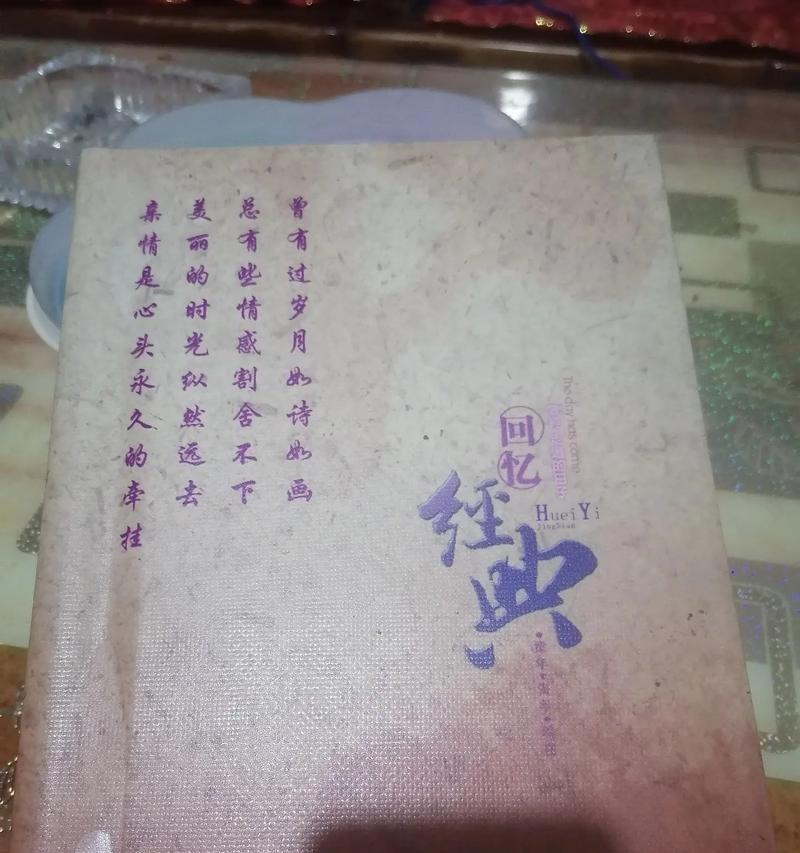 曾有过岁月如诗如画
总有些情感割舍不下
美丽的时光纵然远去
亲情是心头永久的牵挂
回忆
經典
HueiYi
JingDian
The day has come